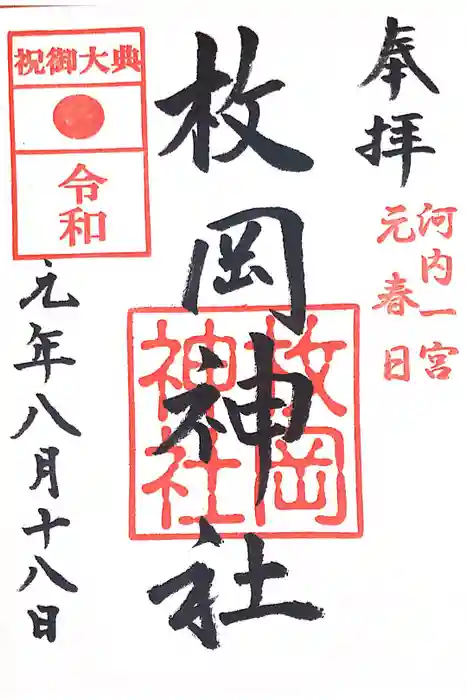 奉拝
河内一宮
元春日
枚岡神社
枚岡
神社
祝御大典
令和
元年八月十八日